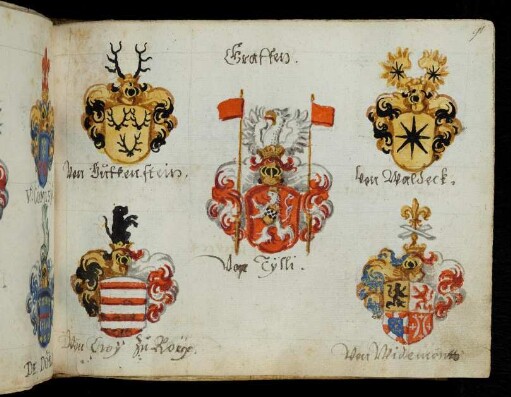 Graffen.
Von Guttenstein.
Von Waldeck.
Von Tÿlli.
Von Croÿ Zu
Von Widemont
DE